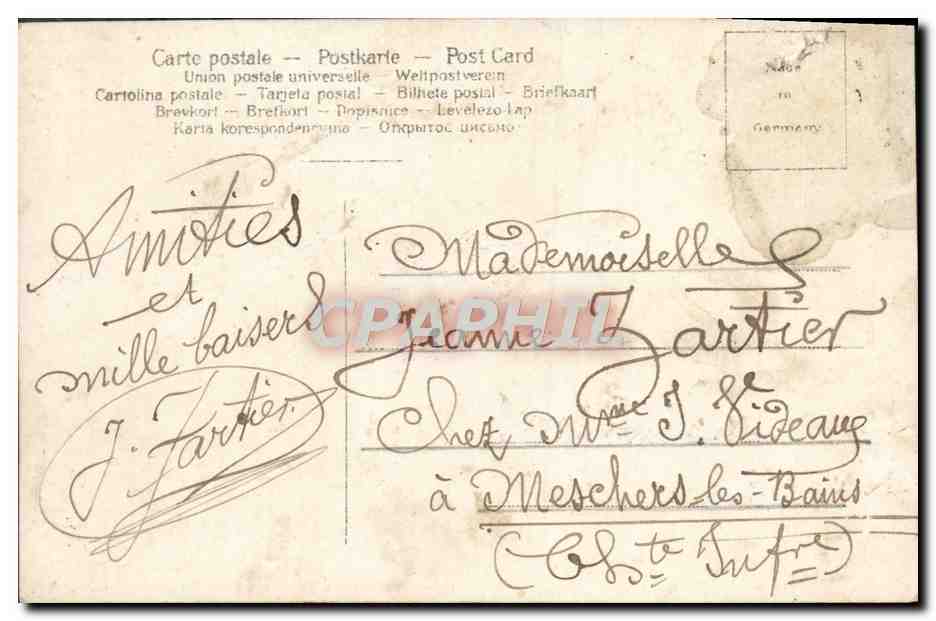 Carte postale — Postkarte — Post Card
Union postale universelle — Weltpostverein
Cartolina postale — Tarjeta postal — Bilhete postal — Briefkaart
Brevkort — Brefkort — Dopisnice — Levelezo Lap
Karta korespondencyjna — Открытое письмо
Made
in
Germany
Amitiés
et
mille baisers
J. Jartier
Mademoiselle
Jeanne Jartier
Chez Mme J. Videau
à Meschers-les-Bains
(Chte Infre)
CPAPHIL